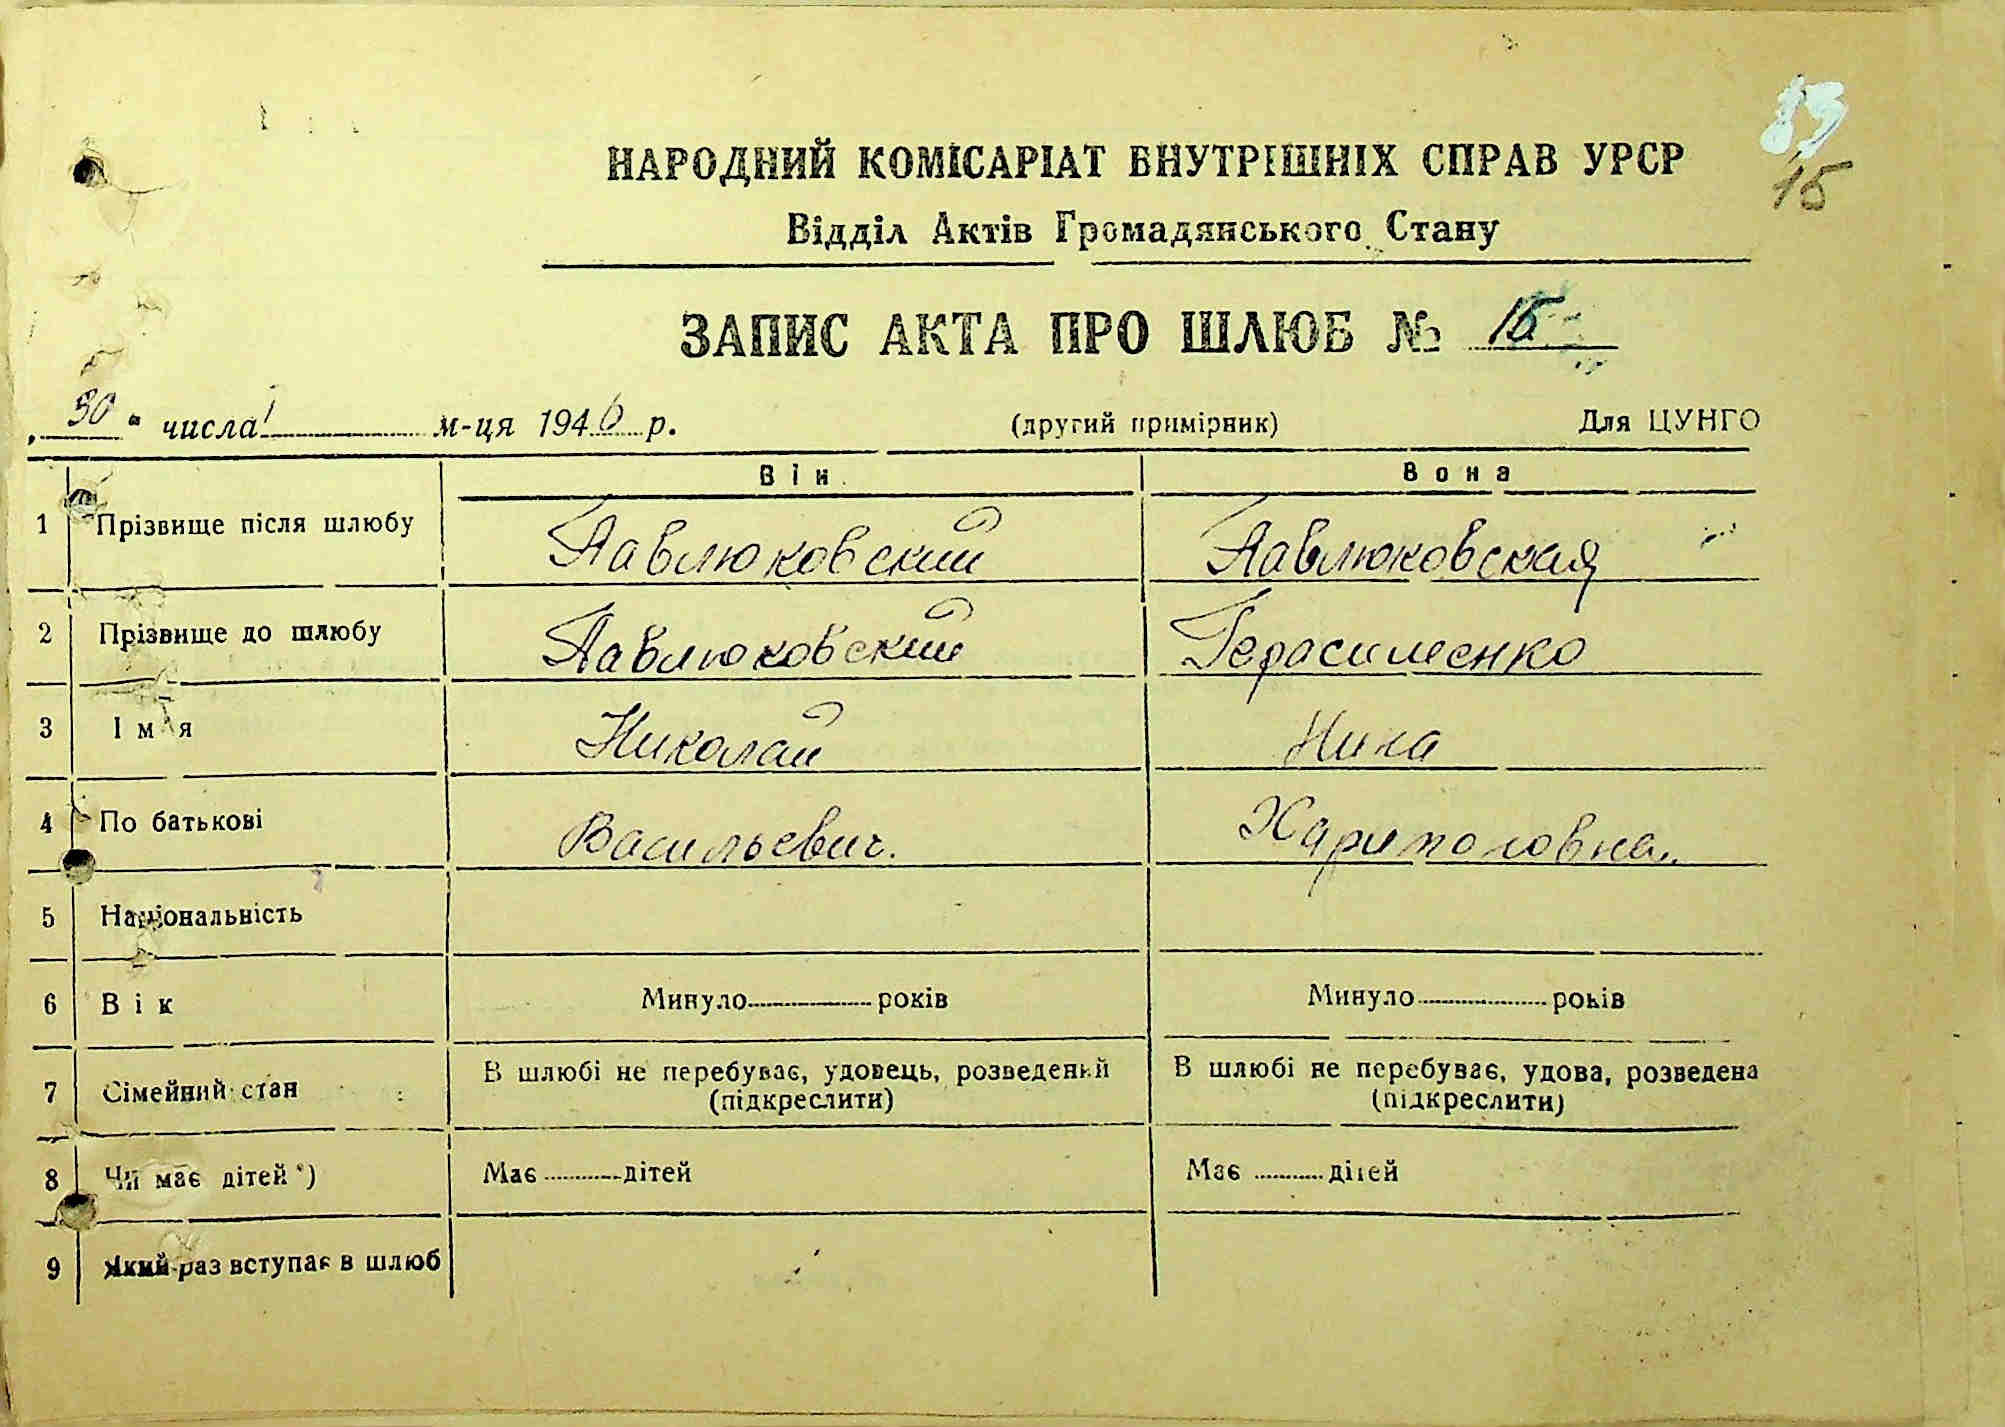 13
15
НАРОДНИЙ КОМІСАРІАТ ВНУТРІШНІХ СПРАВ УРСР
Відділ Актів Громадянського Стану
ЗАПИС АКТА ПРО ШЛЮБ № 15
„30“ числа 1 м-ця 1946 р. (другий примірник) Для ЦУНГО
Він Вона
1 Прізвище після шлюбу Павлюковский Павлюковская
2 Прізвище до шлюбу Павлюковский Герасименко
3 Імʼя Николай Нина
4 По батькові Васильевич. Харитоновна
5 Національність
6 Вік Минуло року років Минуло років
7 Сімейний стан В шлюбі не перебуває, удовець, розведений (підкреслити) В шлюбі не перебуває, удова, розведена (підкреслити)
8 Чи має дітей *) Має дітей Має дітей
9 Який раз вступає в шлюб